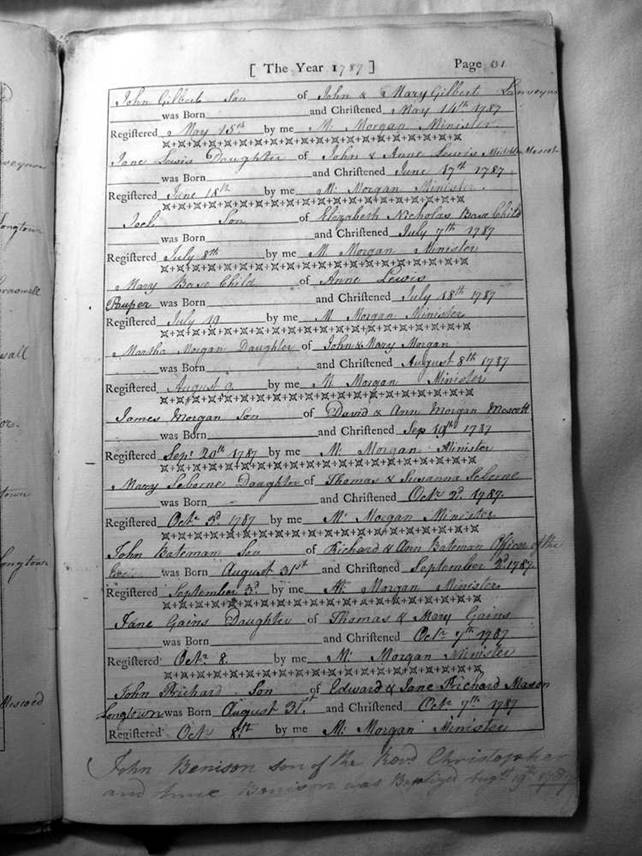 [ The Year 1787 ] Page 61
John Gilbert Son of John & Mary Gilbert
was Born and Christened May 14th 1787
Registered May 15th by me M. Morgan Minister
Jane Lewis Daughter of John & Anne Lewis
was Born and Christened June 17th 1787
Registered June 18th by me M. Morgan Minister
Joel Son of Elizabeth Nicholas Base Child
was Born and Christened July 7th 1787
Registered July 8th by me M. Morgan Minister
Mary Base Child of Anne Lewis
Pauper was Born and Christened July 18th 1787
Registered July 19 by me M Morgan Minister
Martha Morgan Daughter of John & Mary Morgan
was Born and Christened August 8th 1787
Registered August 9 by me M Morgan Minister
James Morgan Son of David & Ann Morgan Mescott
was Born and Christened Sep 19th 1787
Registered Sepr 20th 1787 by me M. Morgan Minister
Mary Seborne Daughter of Thomas & Susanna Seborne
was Born and Christened Octr 2d 1787
Registered Octr 3d 1787 by me M. Morgan Minister
John Bateman Son of Richard & Ann Bateman Officer of the
was Born August 31st and Christened September 2d 1787
Registered September 3d by me M. Morgan Minister
Jane Gains Daughter of Thomas & Mary Gains
was Born and Christened Octr 7th 1787
Registered Octr 8. by me M. Morgan Minister
John Prichard Son of Edward & Jane Prichard Mason
Longtown was Born August 31st and Christened Octr 7th 1787
Registered Octr 8th by me M. Morgan Minister
John Benison son of the Revd Christopher
and Anne Benison was Baptized Augst 19th 1787